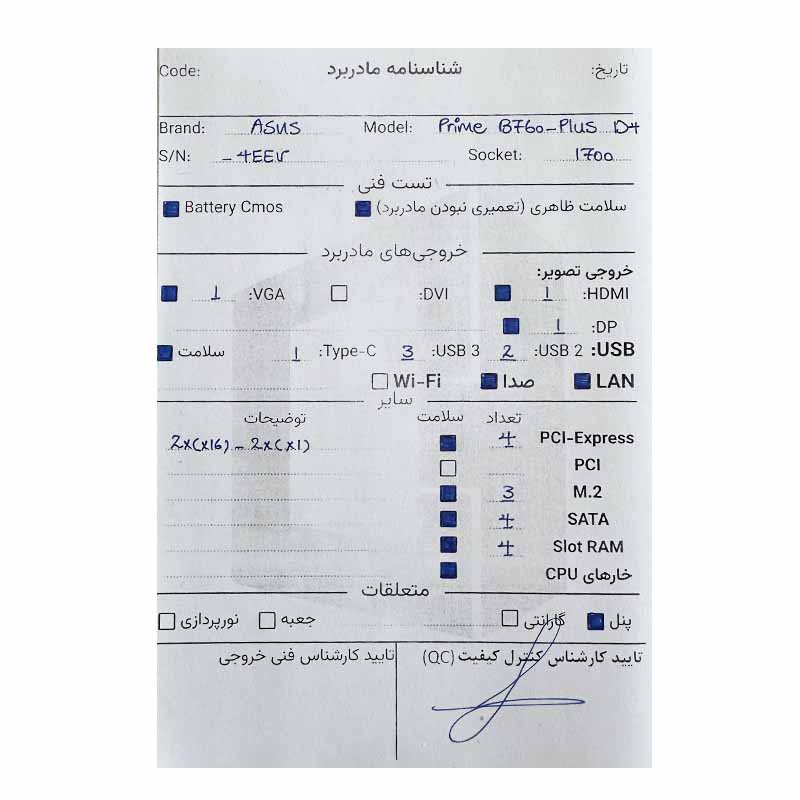 Code: شناسنامه مادربرد تاریخ:
Brand: ASUS Model: Prime B760-Plus D4
S/N: -4EEV Socket: 1700
تست فنی
سلامت ظاهری (تعمیری نبودن مادربرد) Battery Cmos
خروجی‌های مادربرد
خروجی تصویر:
HDMI: 1 DVI: VGA: 1
DP: 1
USB: USB 2: 2 USB 3: 3 Type-C: 1 سلامت
LAN صدا Wi-Fi
سایر
تعداد سلامت توضیحات
PCI-Express 4 2x(x16) - 2x(x1)
PCI
M.2 3
SATA 4
Slot RAM 4
خارهای CPU
متعلقات
پنل گارانتی جعبه نورپردازی
تایید کارشناس کنترل کیفیت (QC) تایید کارشناس فنی خروجی